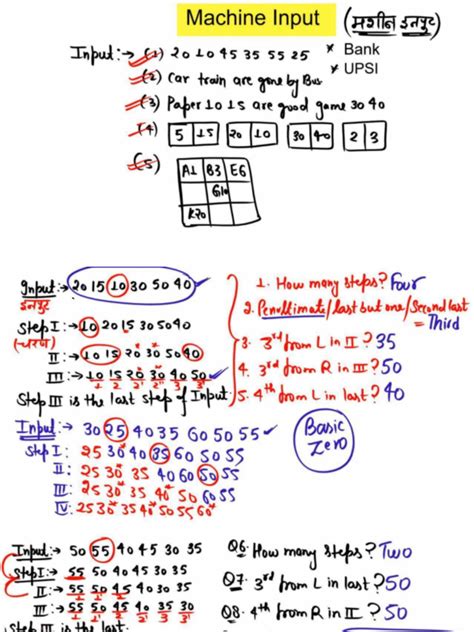 Machine Input (मशीन इनपुट)
Input:→ (1) 20 10 45 35 55 25 * Bank
(2) Car train are gone by Bus * UPSI
(3) Paper 10 15 are good game 30 40
(4) 5 15 20 10 30 40 2 3
(5) A1 B3 E6
G10
K70
Input:→ 20 15 10 30 50 40
इनपुट
Step I:→ 10 20 15 30 50 40
(चरण)
II:→ 10 15 20 30 50 40
III:→ 10 15 20 30 40 50
1 2 2' 2'' 3 3'
Step III is the last step of Input
1. How many steps? Four
2. Penultimate/last but one/Second last
= Third
3. 3rd from L in II? 35
4. 3rd from R in III? 50
5. 4th from L in last? 40
Input:→ 30 25 40 35 60 50 55
Step I: 25 30 40 35 60 50 55
II: 25 30 35 40 60 50 55
III: 25 30 35 40 50 60 55
IV: 25 30 35 40 50 55 60
Basic Zero
Input:→ 50 55 40 45 30 35
Step I:→ 55 50 40 45 30 35
II:→ 55 50 45 40 30 35
III:→ 55 50 45 40 35 30
Step III is the last
Q6. How many steps? Two
Q7. 3rd from L in last? 50
Q8. 4th from R in II? 50